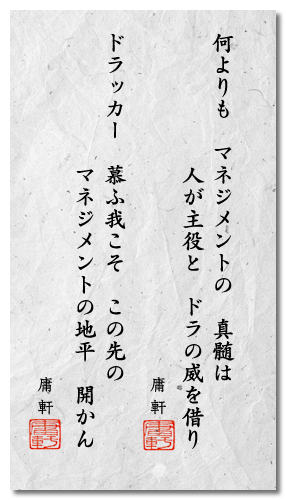 何よりも　マネジメントの　真髄は
人が主役と　ドラの威を借り
庸軒
ドラッカー　慕ふ我こそ　この先の
マネジメントの地平　開かん
庸軒